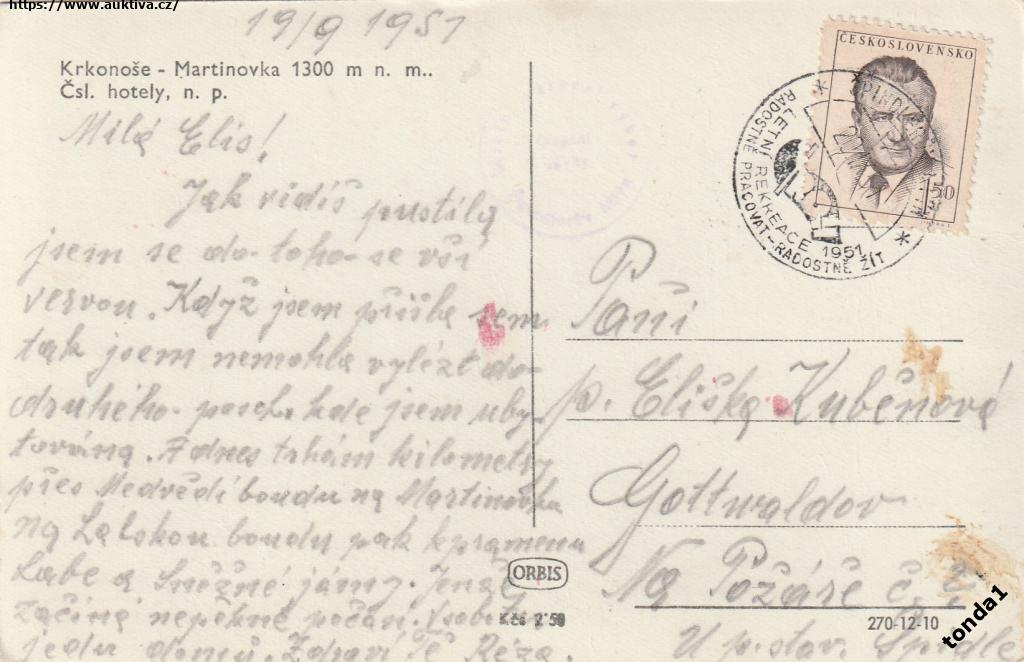 https://www.auktiva.cz/
19/9 1951
Krkonoše - Martinovka 1300 m n. m..
Čsl. hotely, n. p.
Milá Elis!
Jak vidíš pustila
jsem se do-toho-se vší
vervou. Když jsem přišla sem
tak jsem nemohla vylézt do-
druhého- posch. kde jsem uby-
tována. A dnes trhám kilometry
přes Medvědí boudu na Martinovku
na Labskou boudu pak k pramenu
Labe a Sněžné jámy. Jenže
začíná nepěkné počasí. V sobotu
jedu domů. Zdraví Tě Réza.
ČESKOSLOVENSKO
1,50
LETNÍ REKREACE 1951
RADOSTNĚ PRACOVAT - RADOSTNĚ ŽÍT
Paní
p. Eliška Kuběnová
Gottwaldov
Na Požáře č.
U p. stav.
ORBIS
Kčs 2'50
270-12-10
tonda1